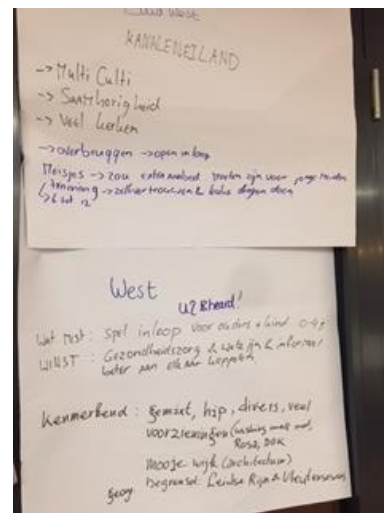 Zuid West
KANALENEILAND
-> Multi Culti
-> Saamhorigheid
-> Veel kerken
-> overbruggen -> open inloop
Meisjes -> zou extra aanbod moeten zijn voor jonge meiden
training -> zelfvertrouwen &
-> 6 tot 12
West
U2Bheard!
Wat mist: Spel inloop voor ouders + kind 0-4j
WINST: Gezondheidszorg & welzijn & informeel
beter aan elkaar koppelen
Kenmerkend: gemixt, hip, divers, veel
voorzieningen
Rosa, DOK
mooie wijk (architectuur)
begrensd Leidse Rijn & Vleutenseweg